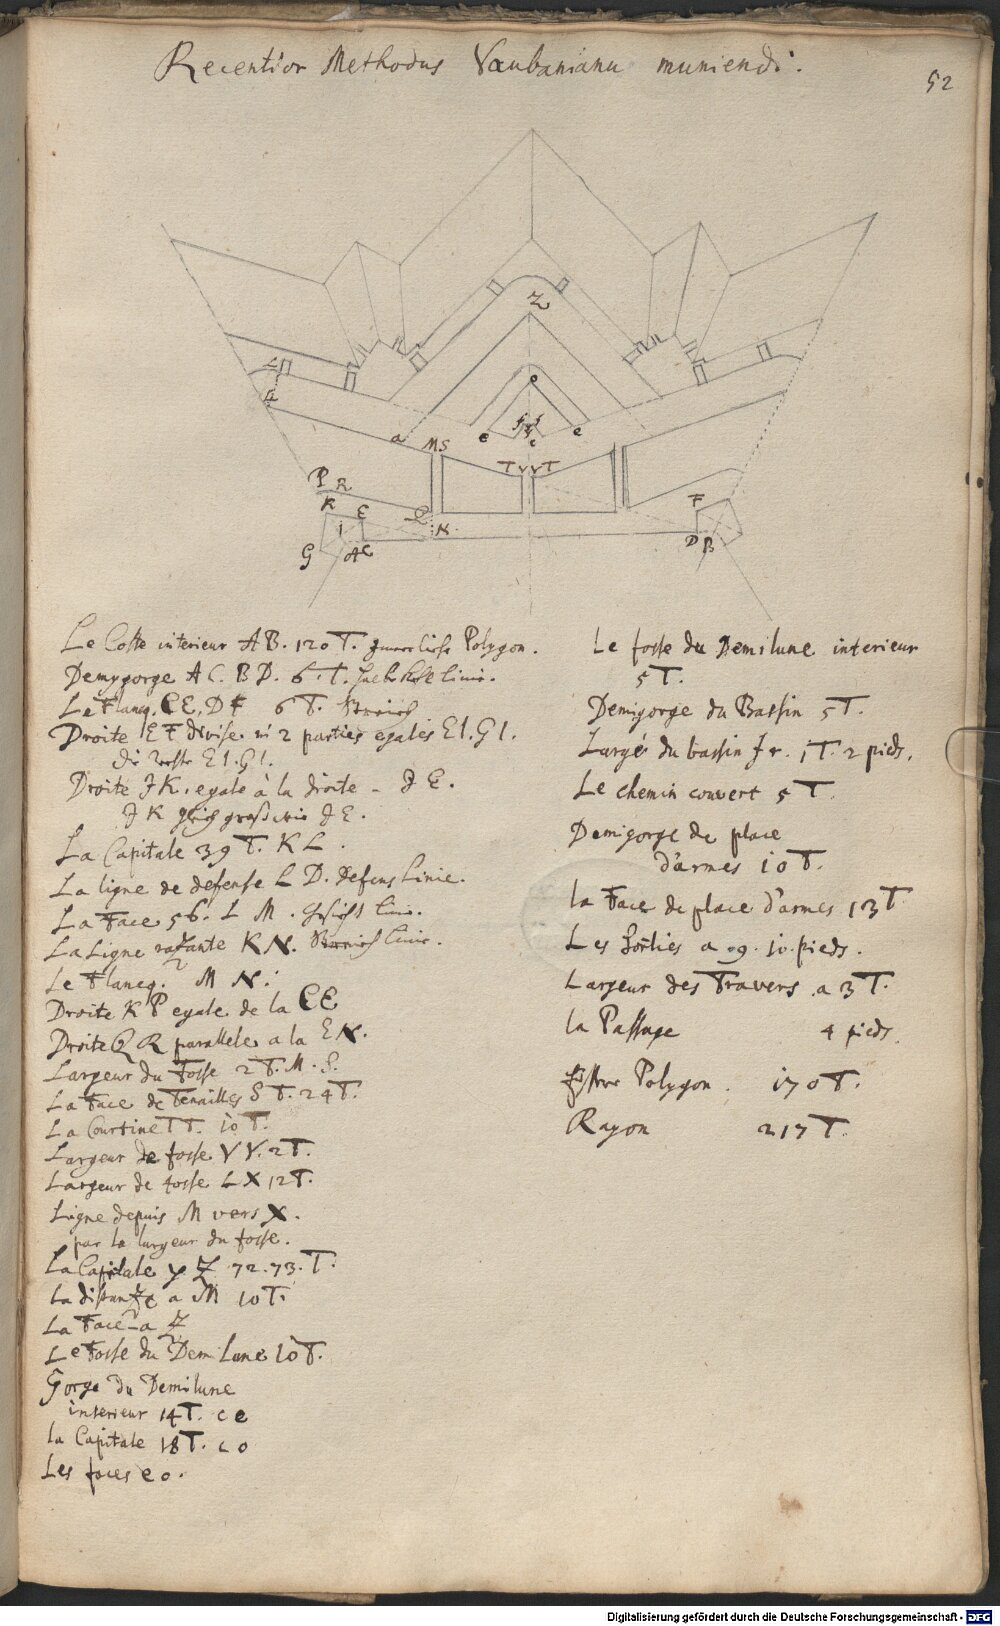 Recentior Methodus Vaubaniana muniendi.
52
Z
L
a
o
e
e
c
a
M S
T V V T
P R
K
E
Q
N
I
G
A C
F
D B
Le Coste interieur A B. 120 T. Polygon.
Demygorge A C. B D. 6. T. Linie.
Le Flanq. C E, D F 6 T. Streich
Droite E F divise in 2 parties egales E I. G I.
E I. G I.
Droite I K. egale à la droite - I E.
I K I E.
La Capitale 39 T. K L.
La ligne de defense L D. Defens Linie.
La Face 56. L M. Gesicht Linie.
La Ligne razante K N. Streich Linie.
Le Flancq. M N.
Droite K P egale de la C E
Droite Q R parallele a la E N.
Largeur du Fosse 2 T. M. S.
La Face de Tenailles S T. 24 T.
La Courtine T T. 10 T.
Largeur de fosse V V. 2 T.
Largeur de fosse L X 12 T.
Ligne depuis M vers X.
par la largeur du fosse.
La Capitale y Z 72. 73. T.
La distanze a M 10 T.
La Face a Z
Le Fosse du Demi Lune 10 T.
Gorge du Demilune
interieur 14 T. c e
la Capitale 18 T. c o
Les faces e o.
Le fosse du Demilune interieur
5 T.
Demigorge du Bassin 5 T.
Large du bassin 1 T. 2 pieds.
Le chemin couvert 5 T.
Demigorge de place
d'armes 10 T.
la Face de place d'armes 13 T
Les Sorties a 9. 10. pieds.
Largeur des Travers a 3 T.
la Passage 4 pieds.
Polygon. 170 T.
Rayon 217 T.
Digitalisierung gefördert durch die Deutsche Forschungsgemeinschaft - DFG